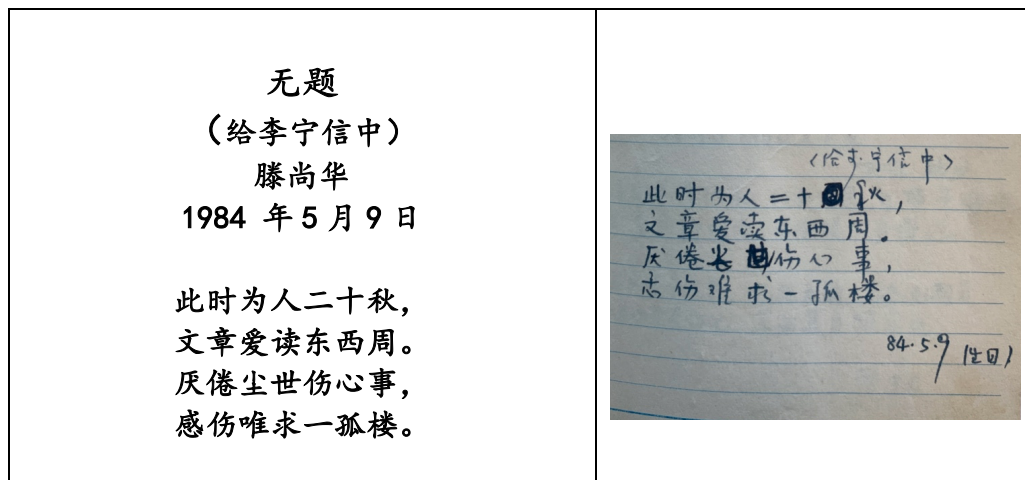 无题
（给李宁信中）
滕尚华
1984 年 5 月 9 日
此时为人二十秋，
文章爱读东西周。
厌倦尘世伤心事，
感伤唯求一孤楼。
（给李宁信中）
此时为人二十秋，
文章爱读东西周。
厌倦尘世伤心事，
伤难求一孤楼。
84.5.9（生日）